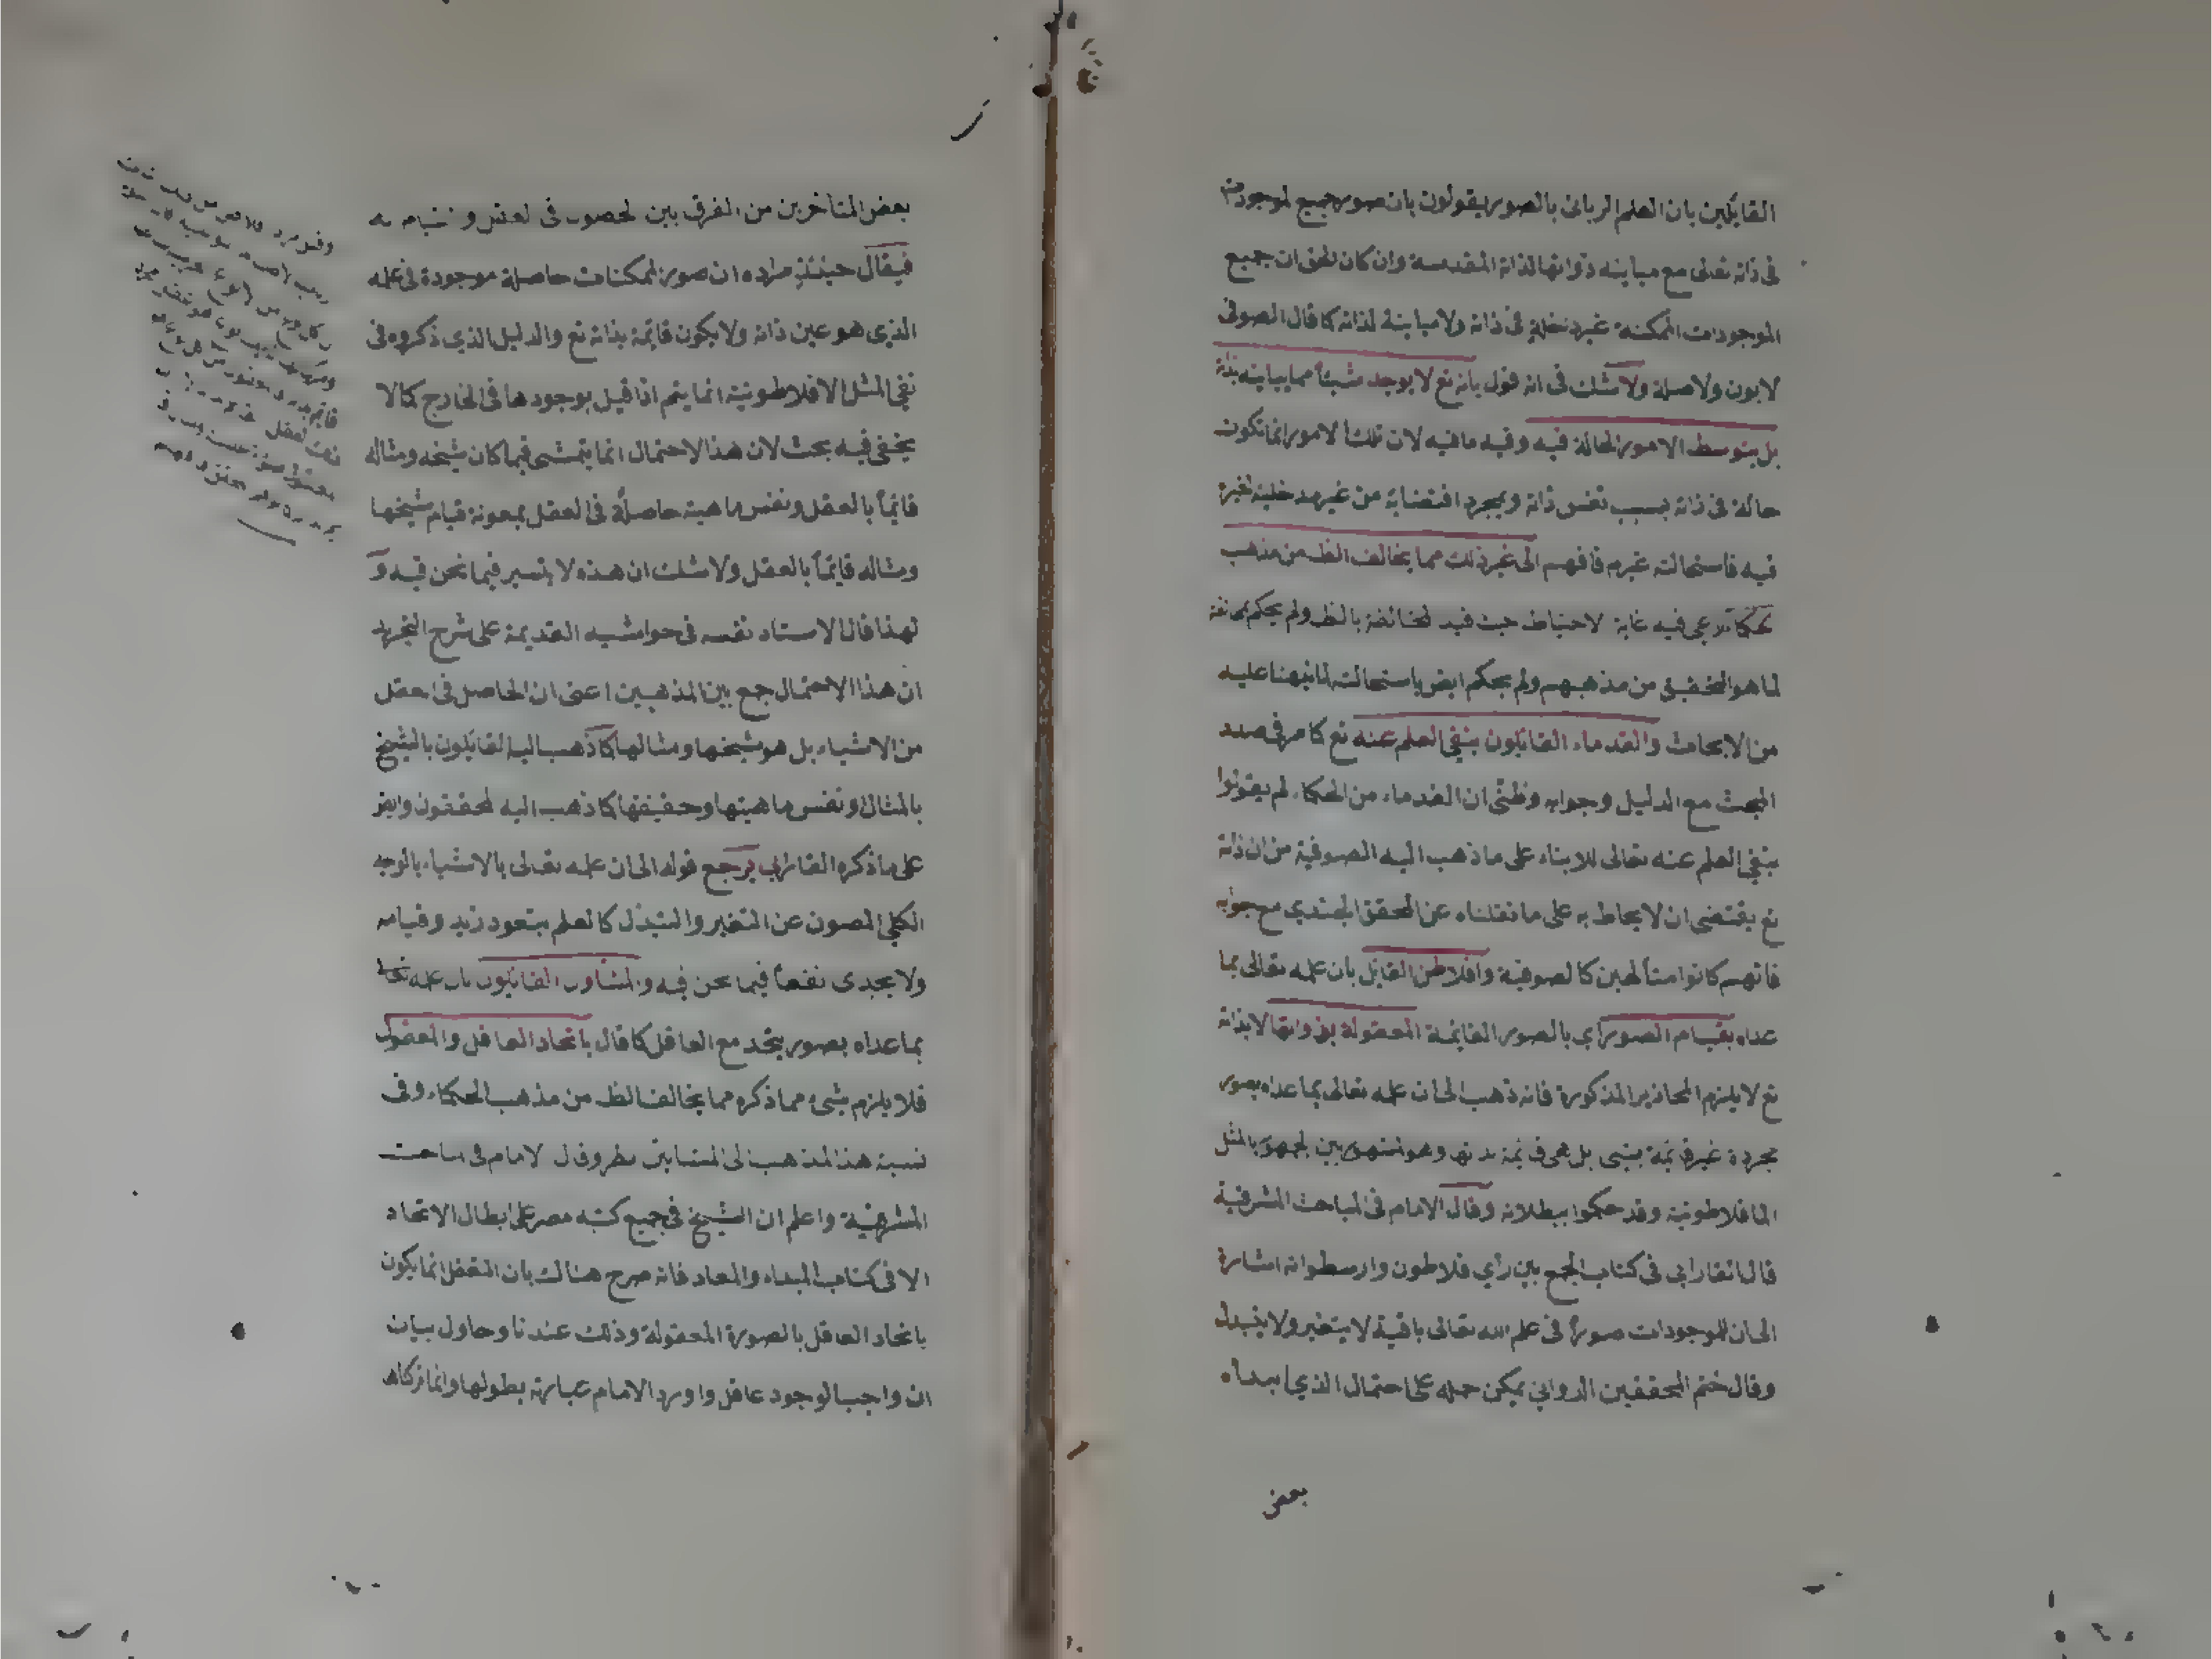 القايلين بان العلم الرباني بالصور يقولون بان صور جميع الموجودات
في ذاته تعالى مع مباينة ذواتها لذاته المقدسة وان كان الحق ان جميع
الموجودات الممكنة غير داخلة في ذاته ولا مباينة لذاته كما قال الصوفي
لا بون ولا صلة ولا شك في انه قول بانه تع لا يوجد شيئا مما يباينه بذاته
بل بتوسط الامور الحالة فيه وفيه ما فيه لان تلك الامور انما تكون
حالة في ذاته بسبب نفس ذاته وبمجرد اقتضائه من غير مدخلية لغيره
فيه فاستحالته غيرم فافهم الى غير ذلك مما يخالف الظ من مذهب
الحكماء رعى فيه غاية الاحتياط حيث قيد المخالفة بالظ ولم يحكم بمخالفته
لما هو التحقيق من مذهبهم ولم يحكم ايض باستحالته لما نبهنا عليه
من الابحاث والقدماء القايلون بنفي العلم عنه تع كما مر في صدد
البحث مع الدليل وجوابه وظني ان القدماء من الحكماء لم يقولوا
بنفي العلم عنه تعالى الا بناء على ما ذهب اليه الصوفية من ان ذاته
تع يقتضي ان لا يحاط به على ما نقلناه عن المحقق الجندي مع جوابه
فانهم كانوا متألهين كالصوفية وافلاطن القايل بان علمه تعالى بما
عداه بقيام الصور اي بالصور القايمة المعقولة بذواتها لا بذاته
تع لا يلزم المحاذير المذكورة فانه ذهب الى ان علمه تعالى بما عداه بصور
مجردة غير قايمة بشيء بل هي قايمة بذاتها وهو المشهور بين الجمهور بالمثل
الافلاطونية وقد حكموا ببطلانه وقال الامام في المباحث المشرقية
قال الفارابي في كتاب الجمع بين رأي فلاطون وارسطو انه اشارة
الى ان للموجودات صورا في علم الله تعالى باقية لا يتغير ولا يتبدل
وقال ختم المحققين الدواني يمكن حمله على احتمال الذي ابداه
بعض
بعض المتاخرين من الفرق بين الحصول في العقل والقيام به
فيقال حينئذ مراده ان صور الممكنات حاصلة موجودة في علمه
الذي هو عين ذاته ولا يكون قايمة بذاته تع والدليل الذي ذكروه في
نفي المثل الافلاطونية انما يتم اذا قيل بوجودها في الخارج كما لا
يخفى فيه بحث لان هذا الاحتمال انما يتمشى فيما كان شبحه ومثاله
قايما بالعقل ونفس ماهيته حاصلة في العقل بمعونة قيام شبحها
ومثاله قايما بالعقل ولا شك ان هذه لا يتسير فيما نحن فيه و
لهذا قال الاستاد نفسه في حواشيه القديمة على شرح التجريد
ان هذا الاحتمال جمع بين المذهبين اعني ان الحاصل في العقل
من الاشياء بل هو شبحها ومثالها كما ذهب اليه القايلون بالشبح
بالمثال ونفس ماهيتها وحقيقتها كما ذهب اليه المحققون وايض
على ما ذكره الفارابي يرجع قوله الى ان علمه تعالى بالاشياء بالوجه
الكلي المصون عن التغير والتبدل كالعلم بقعود زيد وقيامه
ولا يجدى نفعا فيما نحن فيه والمشاؤن القايلون بان علمه تعالى
بما عداه بصور يتحد مع العاقل كما قال باتحاد العاقل والمعقول
فلا يلزم شيء مما ذكره مما يخالف الظ من مذهب الحكماء وفي
نسبة هذا المذهب الى المشايين نظر وقال الامام في المباحث
المشرقية واعلم ان الشيخ في جميع كتبه مصر على ابطال الاتحاد
الا في كتاب المبداء والمعاد فانه صرح هنالك بان التعقل انما يكون
باتحاد العاقل بالصورة المعقولة وذلك عندنا وحاول بيان
ان واجب الوجود عاقل واورد الامام عبارته بطولها وانما تركناه